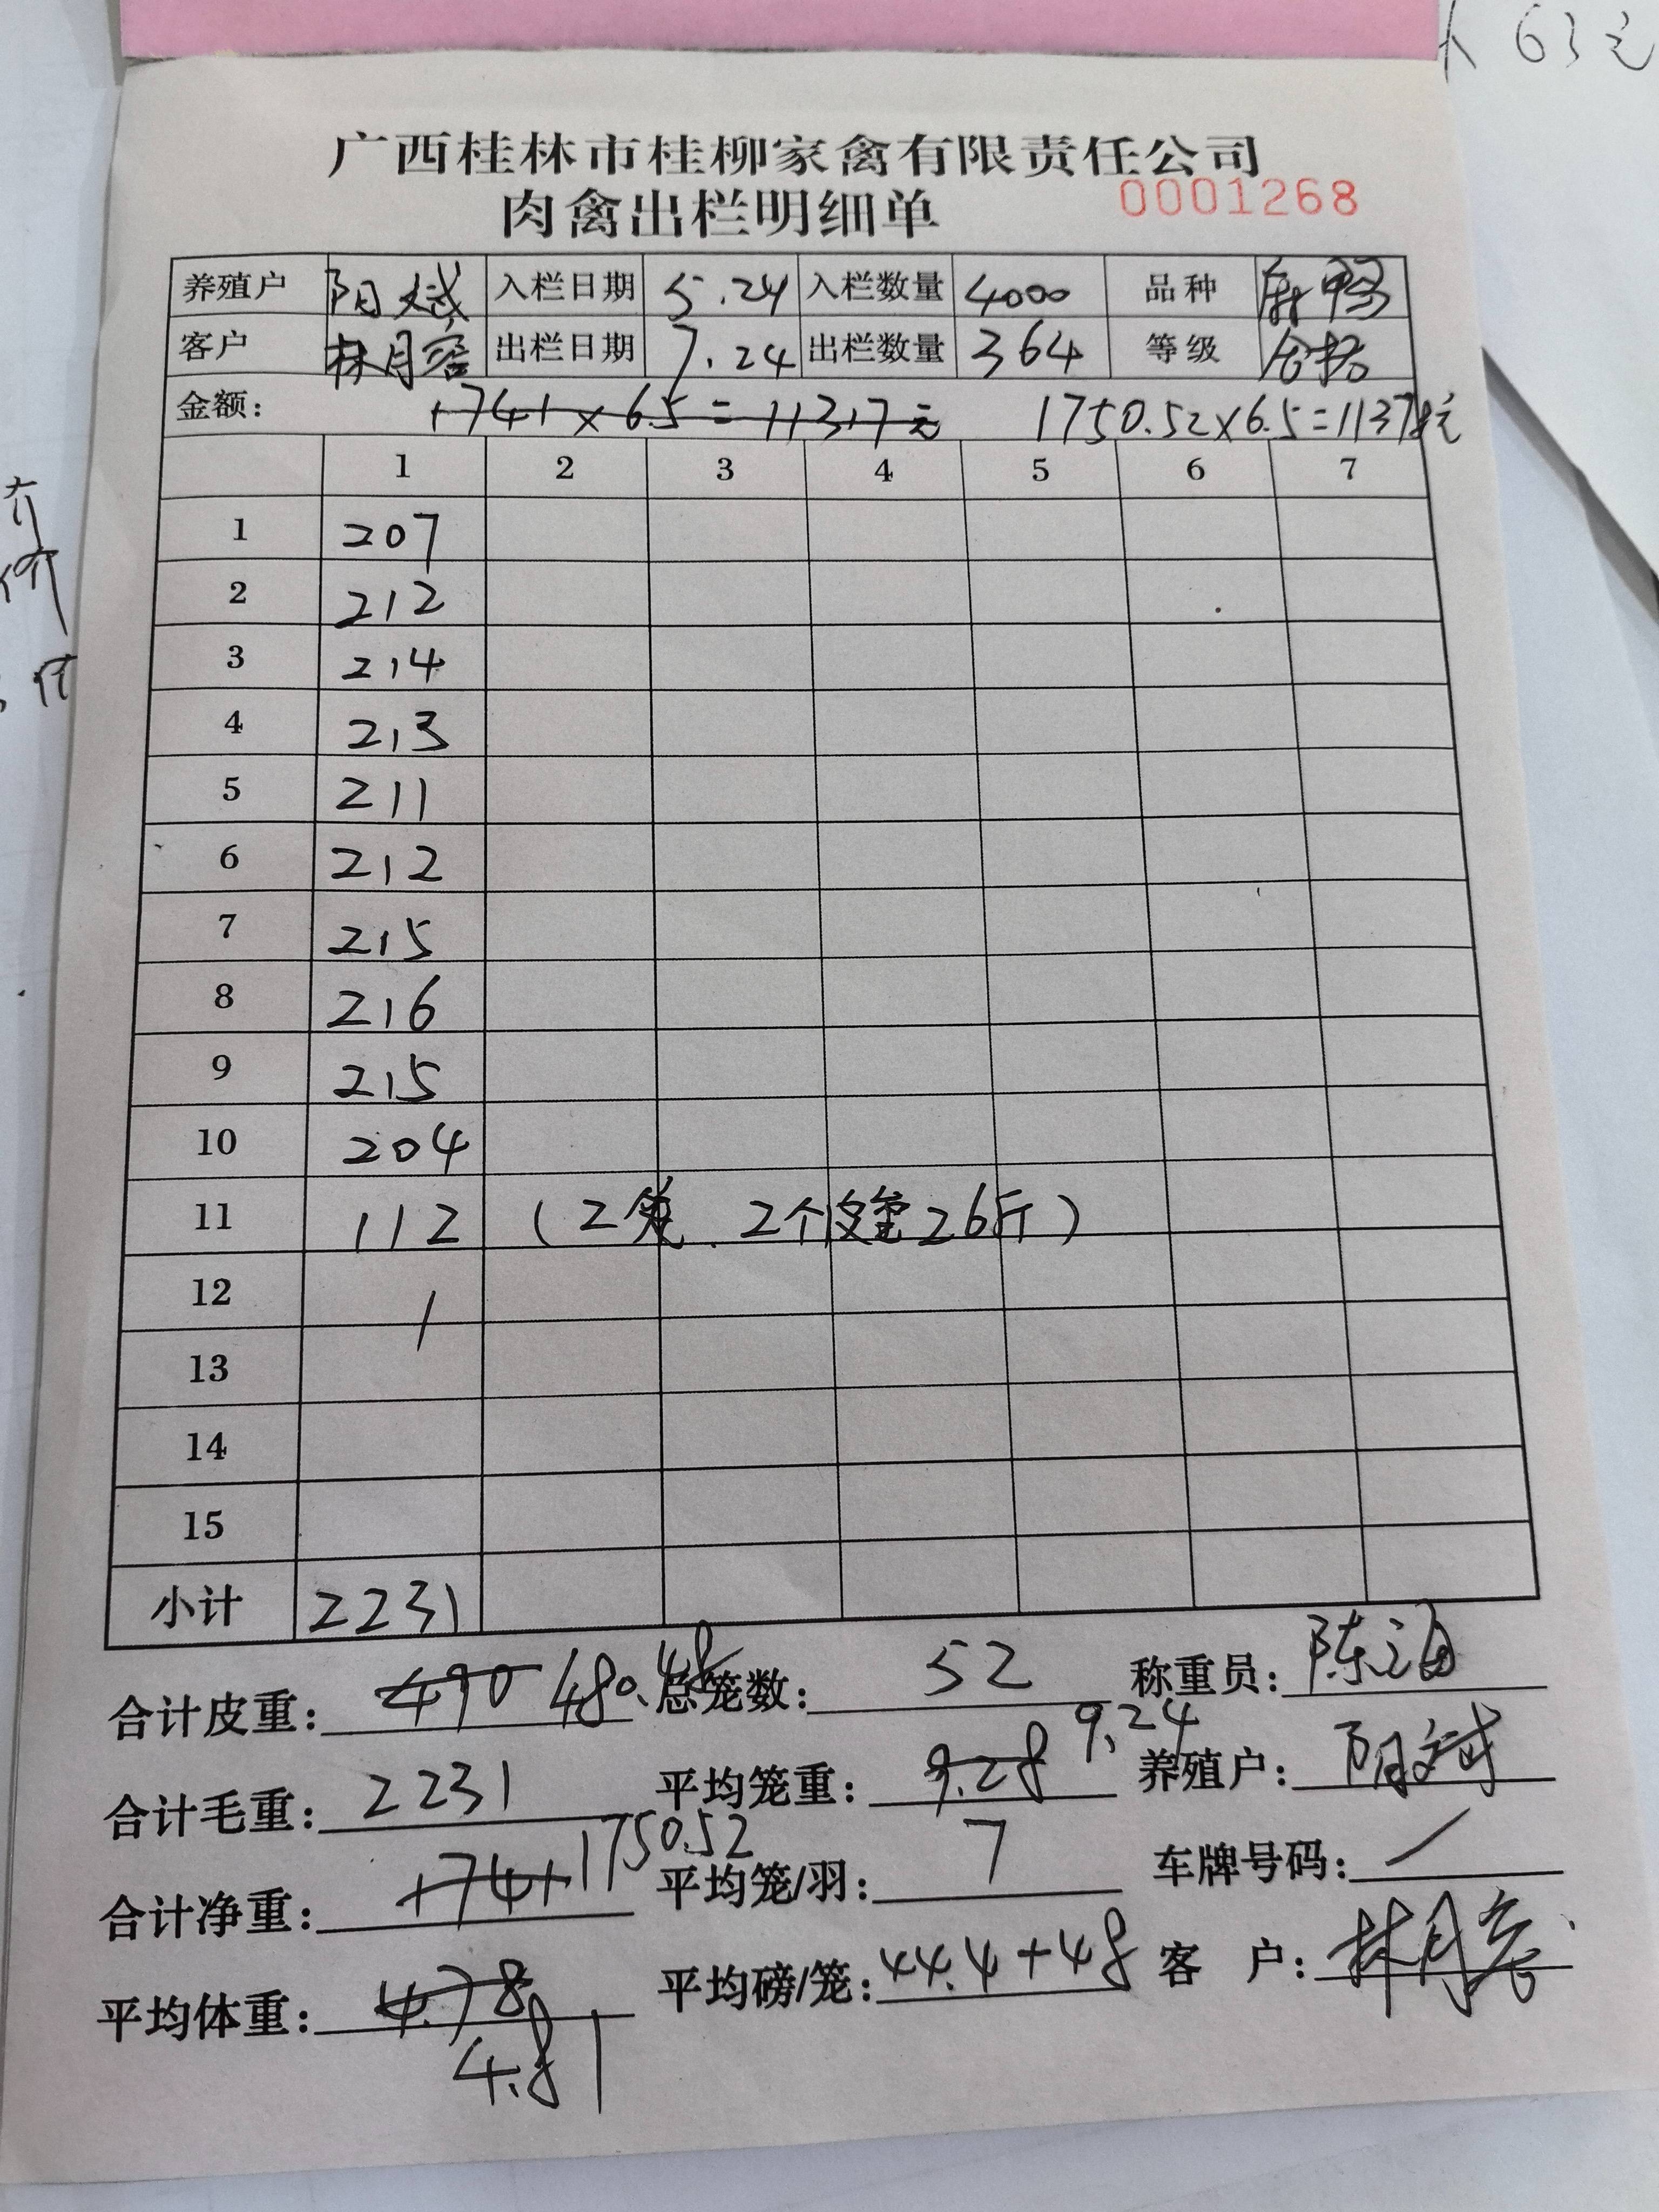 63元
广西桂林市桂柳家禽有限责任公司
肉禽出栏明细单 0001268
养殖户 阳文斌 入栏日期 5.24 入栏数量 4000 品种 麻鸭
客户 林月 出栏日期 7.24 出栏数量 364 等级 合格
金额: 1741×6.5=11317元 1750.52×6.5=11378元
1 2 3 4 5 6 7
1 207
2 212
3 214
4 213
5 211
6 212
7 215
8 216
9 215
10 204
11 112 (2笼、2个皮重26斤)
12 /
13
14
15
小计 2231
合计皮重: 490 480.48 总笼数: 52 称重员: 陈海
合计毛重: 2231 平均笼重: 9.28 9.24 养殖户: 阳文斌
合计净重: 1741 1750.52 平均笼/羽: 7 车牌号码: /
平均体重: 4.78 平均磅/笼: 44.4+48 客 户: 林月
4.81